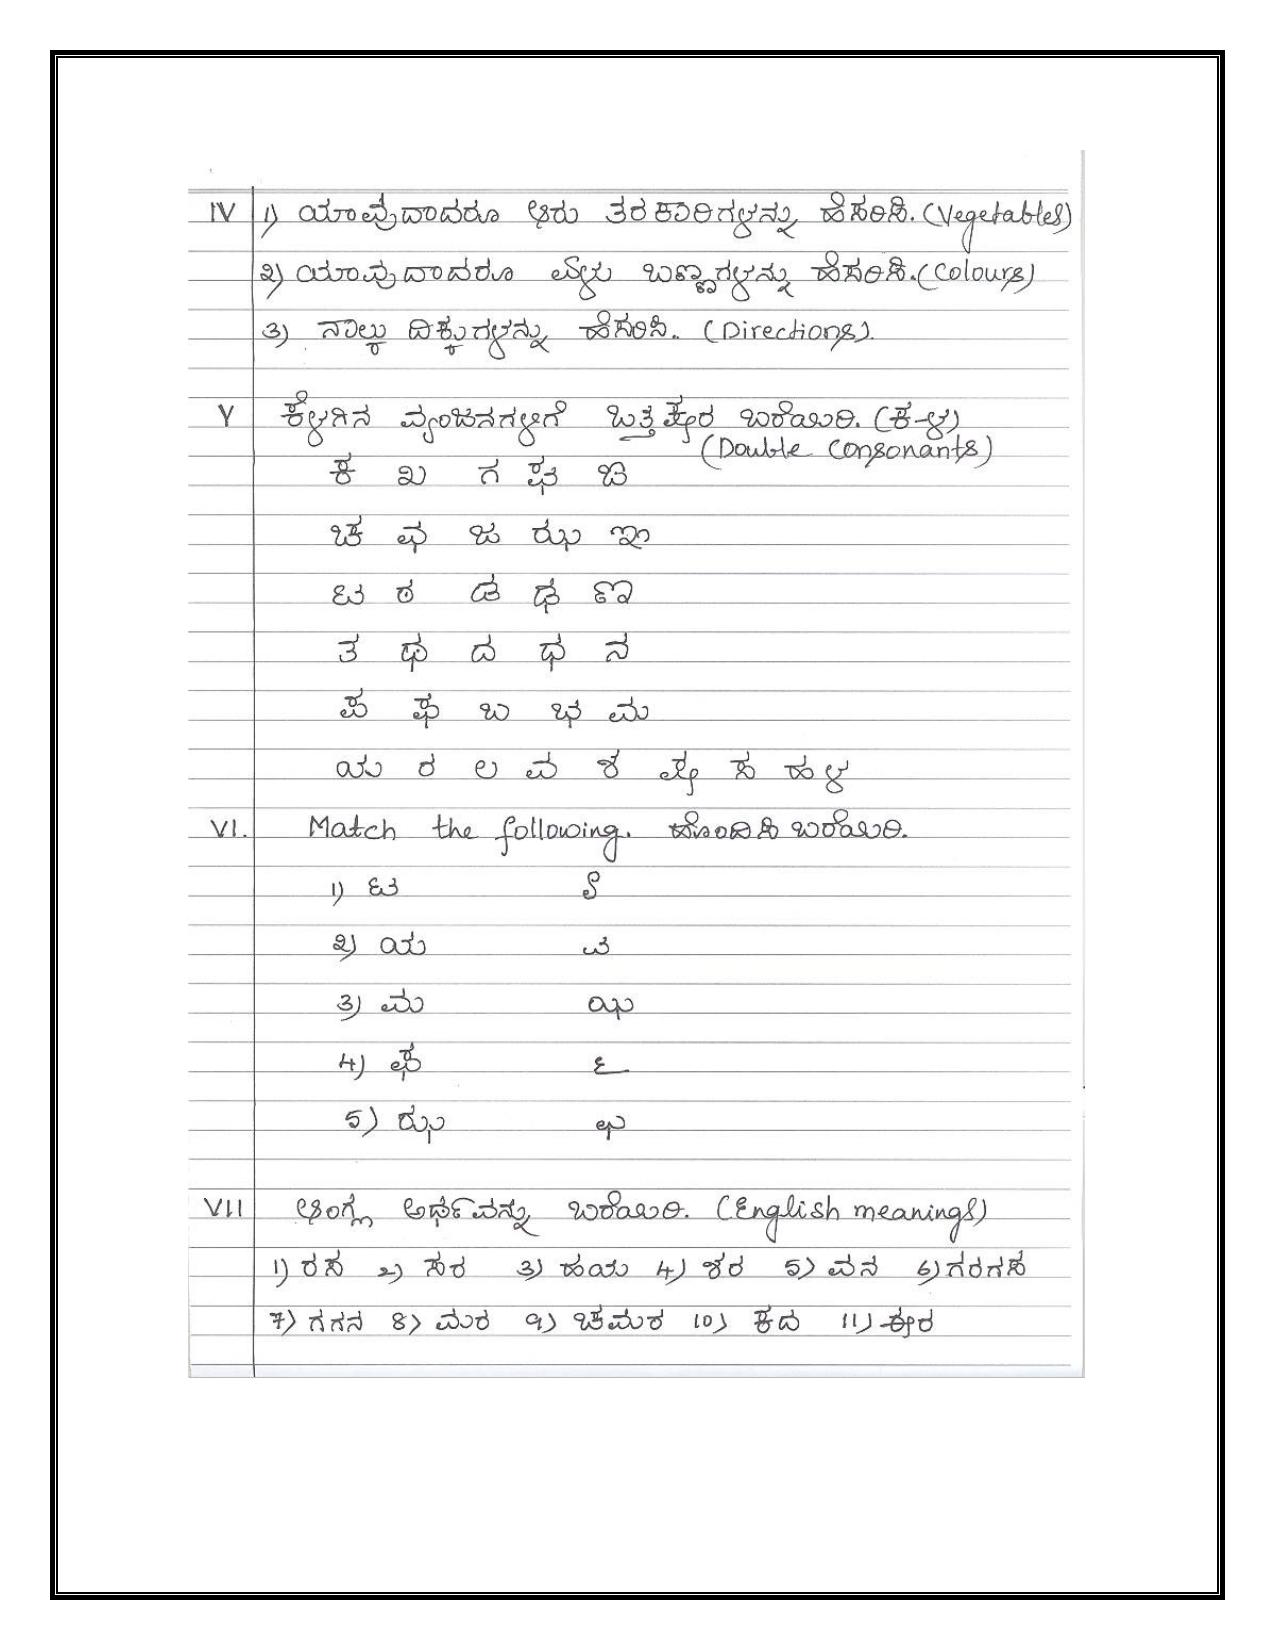 IV 1) ಯಾವುದಾದರೂ ಆರು ತರಕಾರಿಗಳನ್ನು ಹೆಸರಿಸಿ. (Vegetables)
೨) ಯಾವುದಾದರೂ ಏಳು ಬಣ್ಣಗಳನ್ನು ಹೆಸರಿಸಿ. (Colours)
೩) ನಾಲ್ಕು ದಿಕ್ಕುಗಳನ್ನು ಹೆಸರಿಸಿ. (Directions).
V ಕೆಳಗಿನ ವ್ಯಂಜನಗಳಿಗೆ ಒತ್ತಕ್ಷರ ಬರೆಯಿರಿ. (ಕ-ಳ)
(Double consonants)
ಕ ಖ ಗ ಘ ಙ
ಚ ಛ ಜ ಝ ಞ
ಟ ಠ ಡ ಢ ಣ
ತ ಥ ದ ಧ ನ
ಪ ಫ ಬ ಭ ಮ
ಯ ರ ಲ ವ ಶ ಷ ಸ ಹ ಳ
VI. Match the following. ಹೊಂದಿಸಿ ಬರೆಯಿರಿ.
1) ಟ
೨) ಯ
೩) ಮ
4) ಛ
5) ಝ
VII ಆಂಗ್ಲ ಅರ್ಥವನ್ನು ಬರೆಯಿರಿ. (English meanings)
1) ರಸ ೨) ಸರ ೩) ಹಯ 4) ಶರ 5) ವನ 6) ಗರಗಸ
7) ಗಗನ 8) ಮರ ೯) ಚಮಚ 10) ಕದ 11)